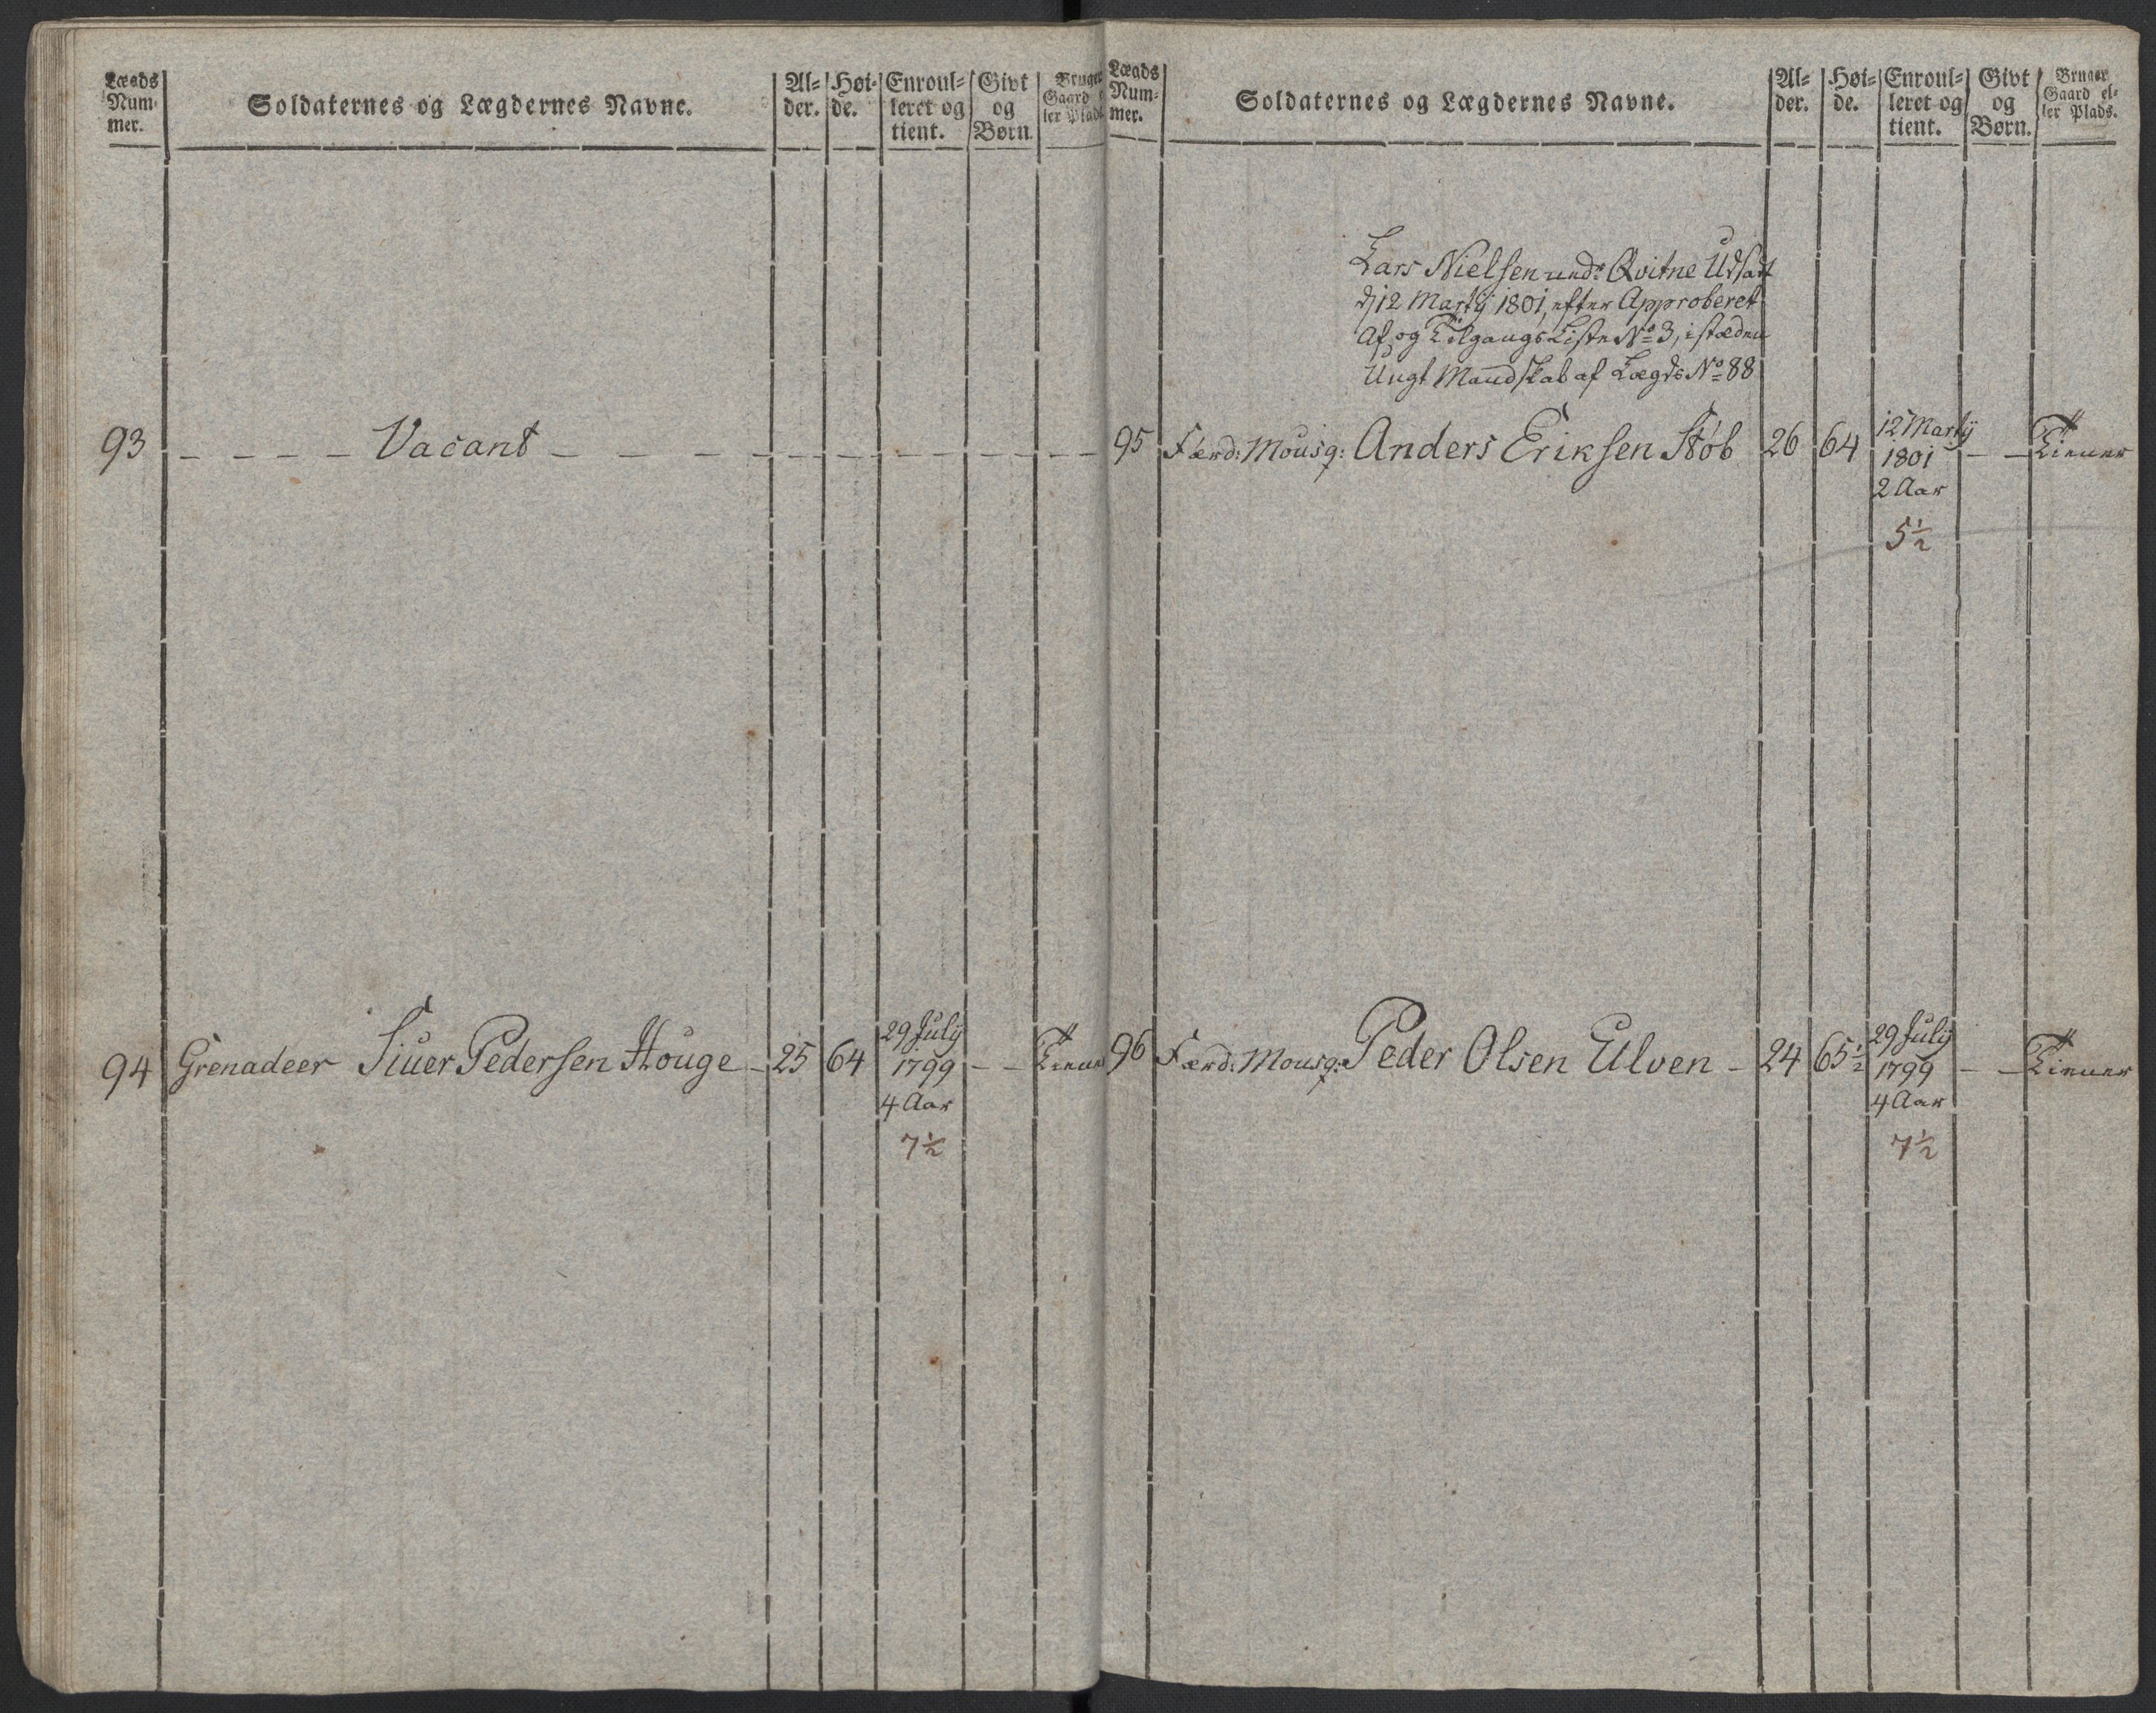 Lægds
Num-
mer.
Soldaternes og Lægdernes Navne.
Al-
der.
Høi-
de.
Enroul-
leret og
tient.
Givt
og
Børn.
Bruger
Gaard
ler Plads
93 - - - - Vacant - - - - - - - - - - -
94 Grenadeer Siuer Pedersen Houge - 25 64 29 Julij - - Tiener
1799
4 Aar
7½
Lægds
Num-
mer.
Soldaternes og Lægdernes Navne.
Al-
der.
Høi-
de.
Enroul-
leret og
tient.
Givt
og
Børn.
Bruger
Gaard el-
ler Plads.
Lars Nielsen und: Qvitne Udsadt
d 12 Martij 1801, efter Approberet
Af og Tilgangs Liste No 3, istæden
Ungt Mandskab af Lægds No 88
95 Færd: Mousq: Anders Eriksen Støb 26 64 12 Martij - - Tiener
1801
2 Aar
5½
96 Færd: Mousq: Peder Olsen Ulven - 24 65½ 29 Julij - - Tiener
1799
4 Aar
7½